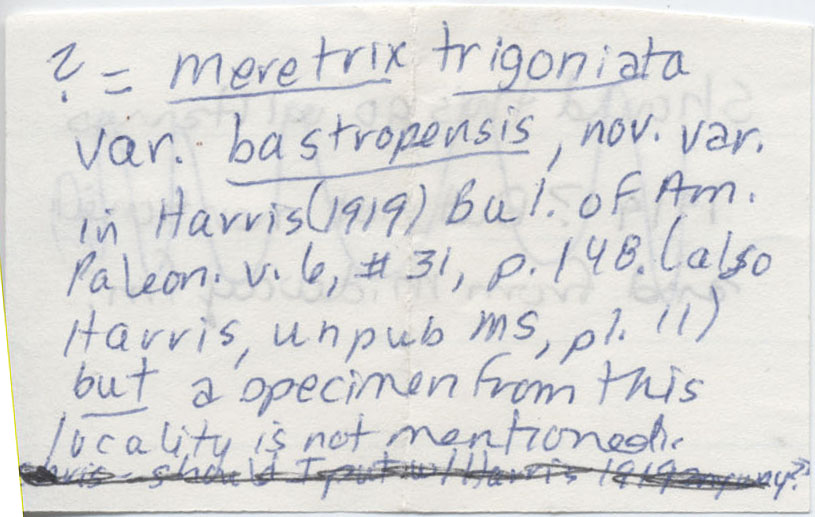 ? = meretrix trigoniata
var. bastropensis, nov. var.
in Harris (1919) Bul. of Am.
Paleon. v. 6, # 31, p. 148. (also
Harris, unpub ms, pl. 11)
but a specimen from this
locality is not mentioned.
should I put w/ Harris 1919 anyway?